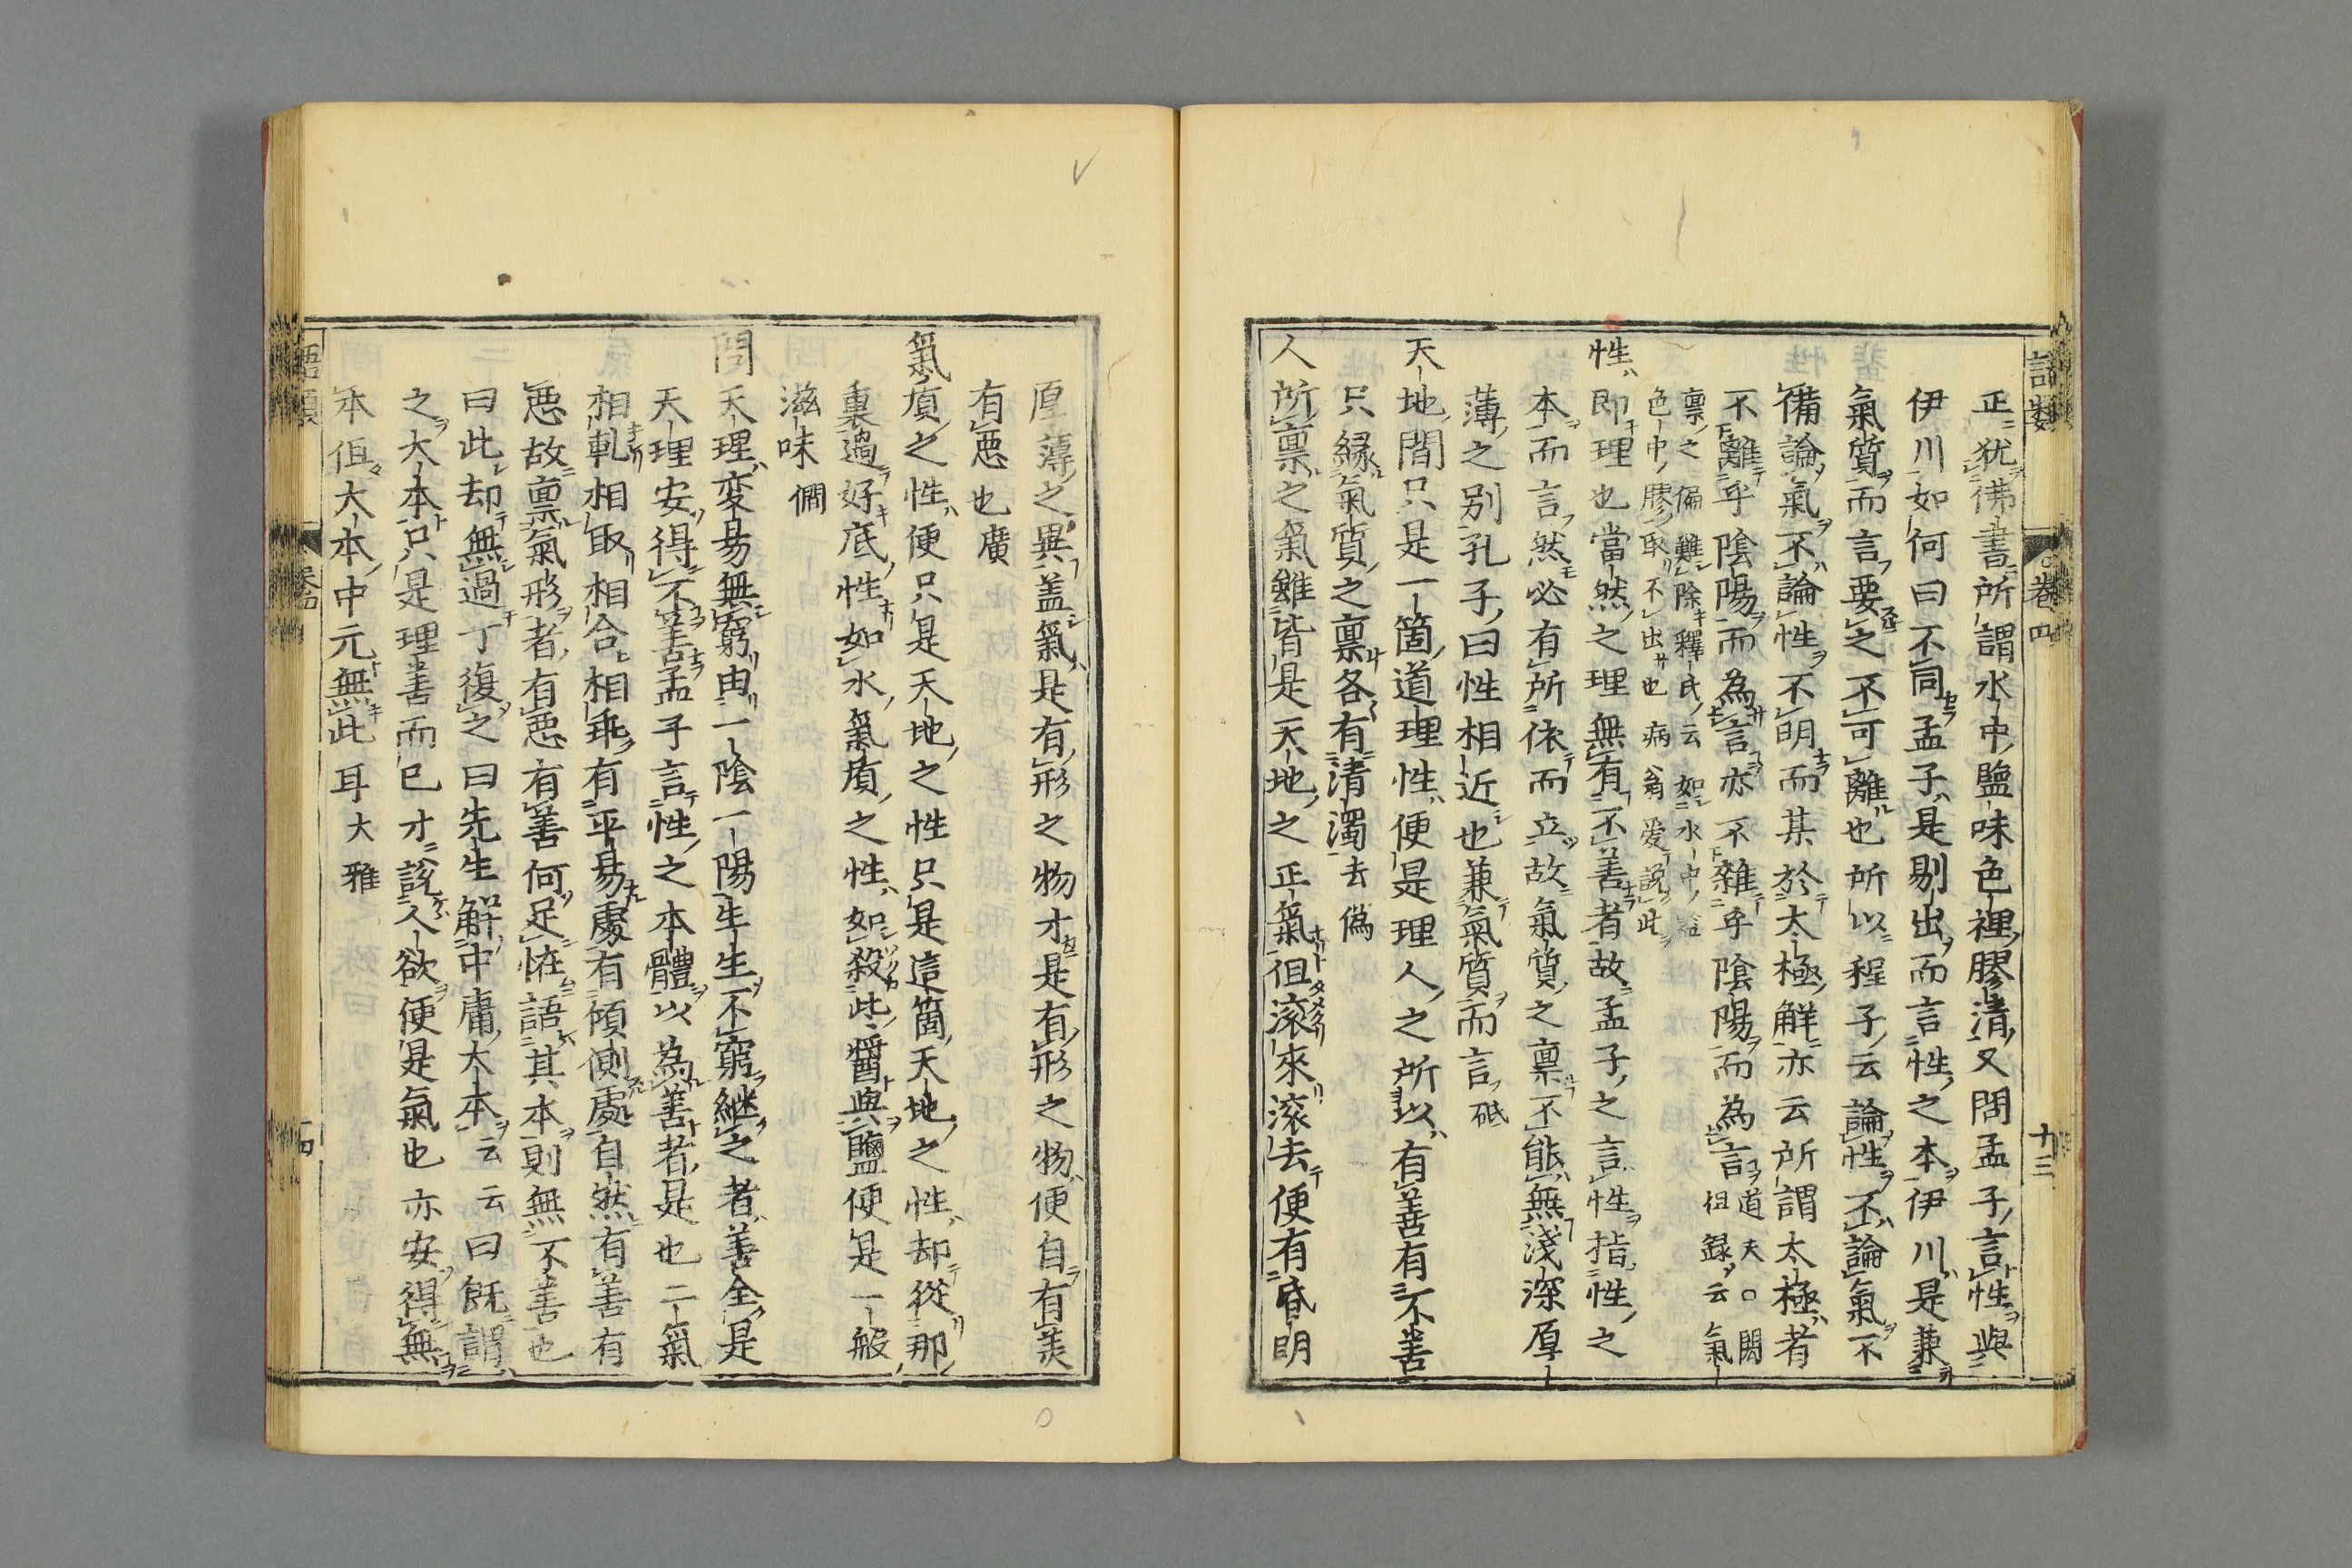 語類
卷四
十三
正猶佛書所謂水中鹽味色裡膠清又問孟子言性與
伊川如何曰不同孟子是剔出而言性之本伊川是兼
氣質而言要之不可離也所以程子云論性不論氣不
備論氣不論性不明而某於太極解亦云所謂太極者
不離乎陰陽而為言亦不雜乎陰陽而為言道夫○閎
祖錄云氣
禀之偏難除釋氏云如水中鹽
色中膠取不出也病翁愛說此
性即理也當然之理無有不善者故孟子之言性指性之
本而言然必有所依而立故氣質之禀不能無淺深厚
薄之別孔子曰性相近也兼氣質而言砥
天地間只是一箇道理性便是理人之所以有善有不善
只緣氣質之禀各有清濁去偽
人所禀之氣雖皆是天地之正氣但滚來滚去便有昏明
厚薄之異盖氣是有形之物才是有形之物便自有美
有惡也廣
氣質之性便只是天地之性只是這箇天地之性却從那
裏過好底性如水氣質之性如殺此醬與鹽便是一般
滋味僴
問天理変易無窮由一陰一陽生生不窮継之者善全是
天理安得不善孟子言性之本體以為善者是也二氣
相軋相取相合相乖有平易處有傾側處自然有善有
惡故禀氣形者有惡有善何足怪語其本則無不善也
曰此却無過丁復之曰先生解中庸大本云云曰既謂
之大本只是理善而已才說人欲便是氣也亦安得無
本但大本中元無此耳大雅
語類
卷四
十四